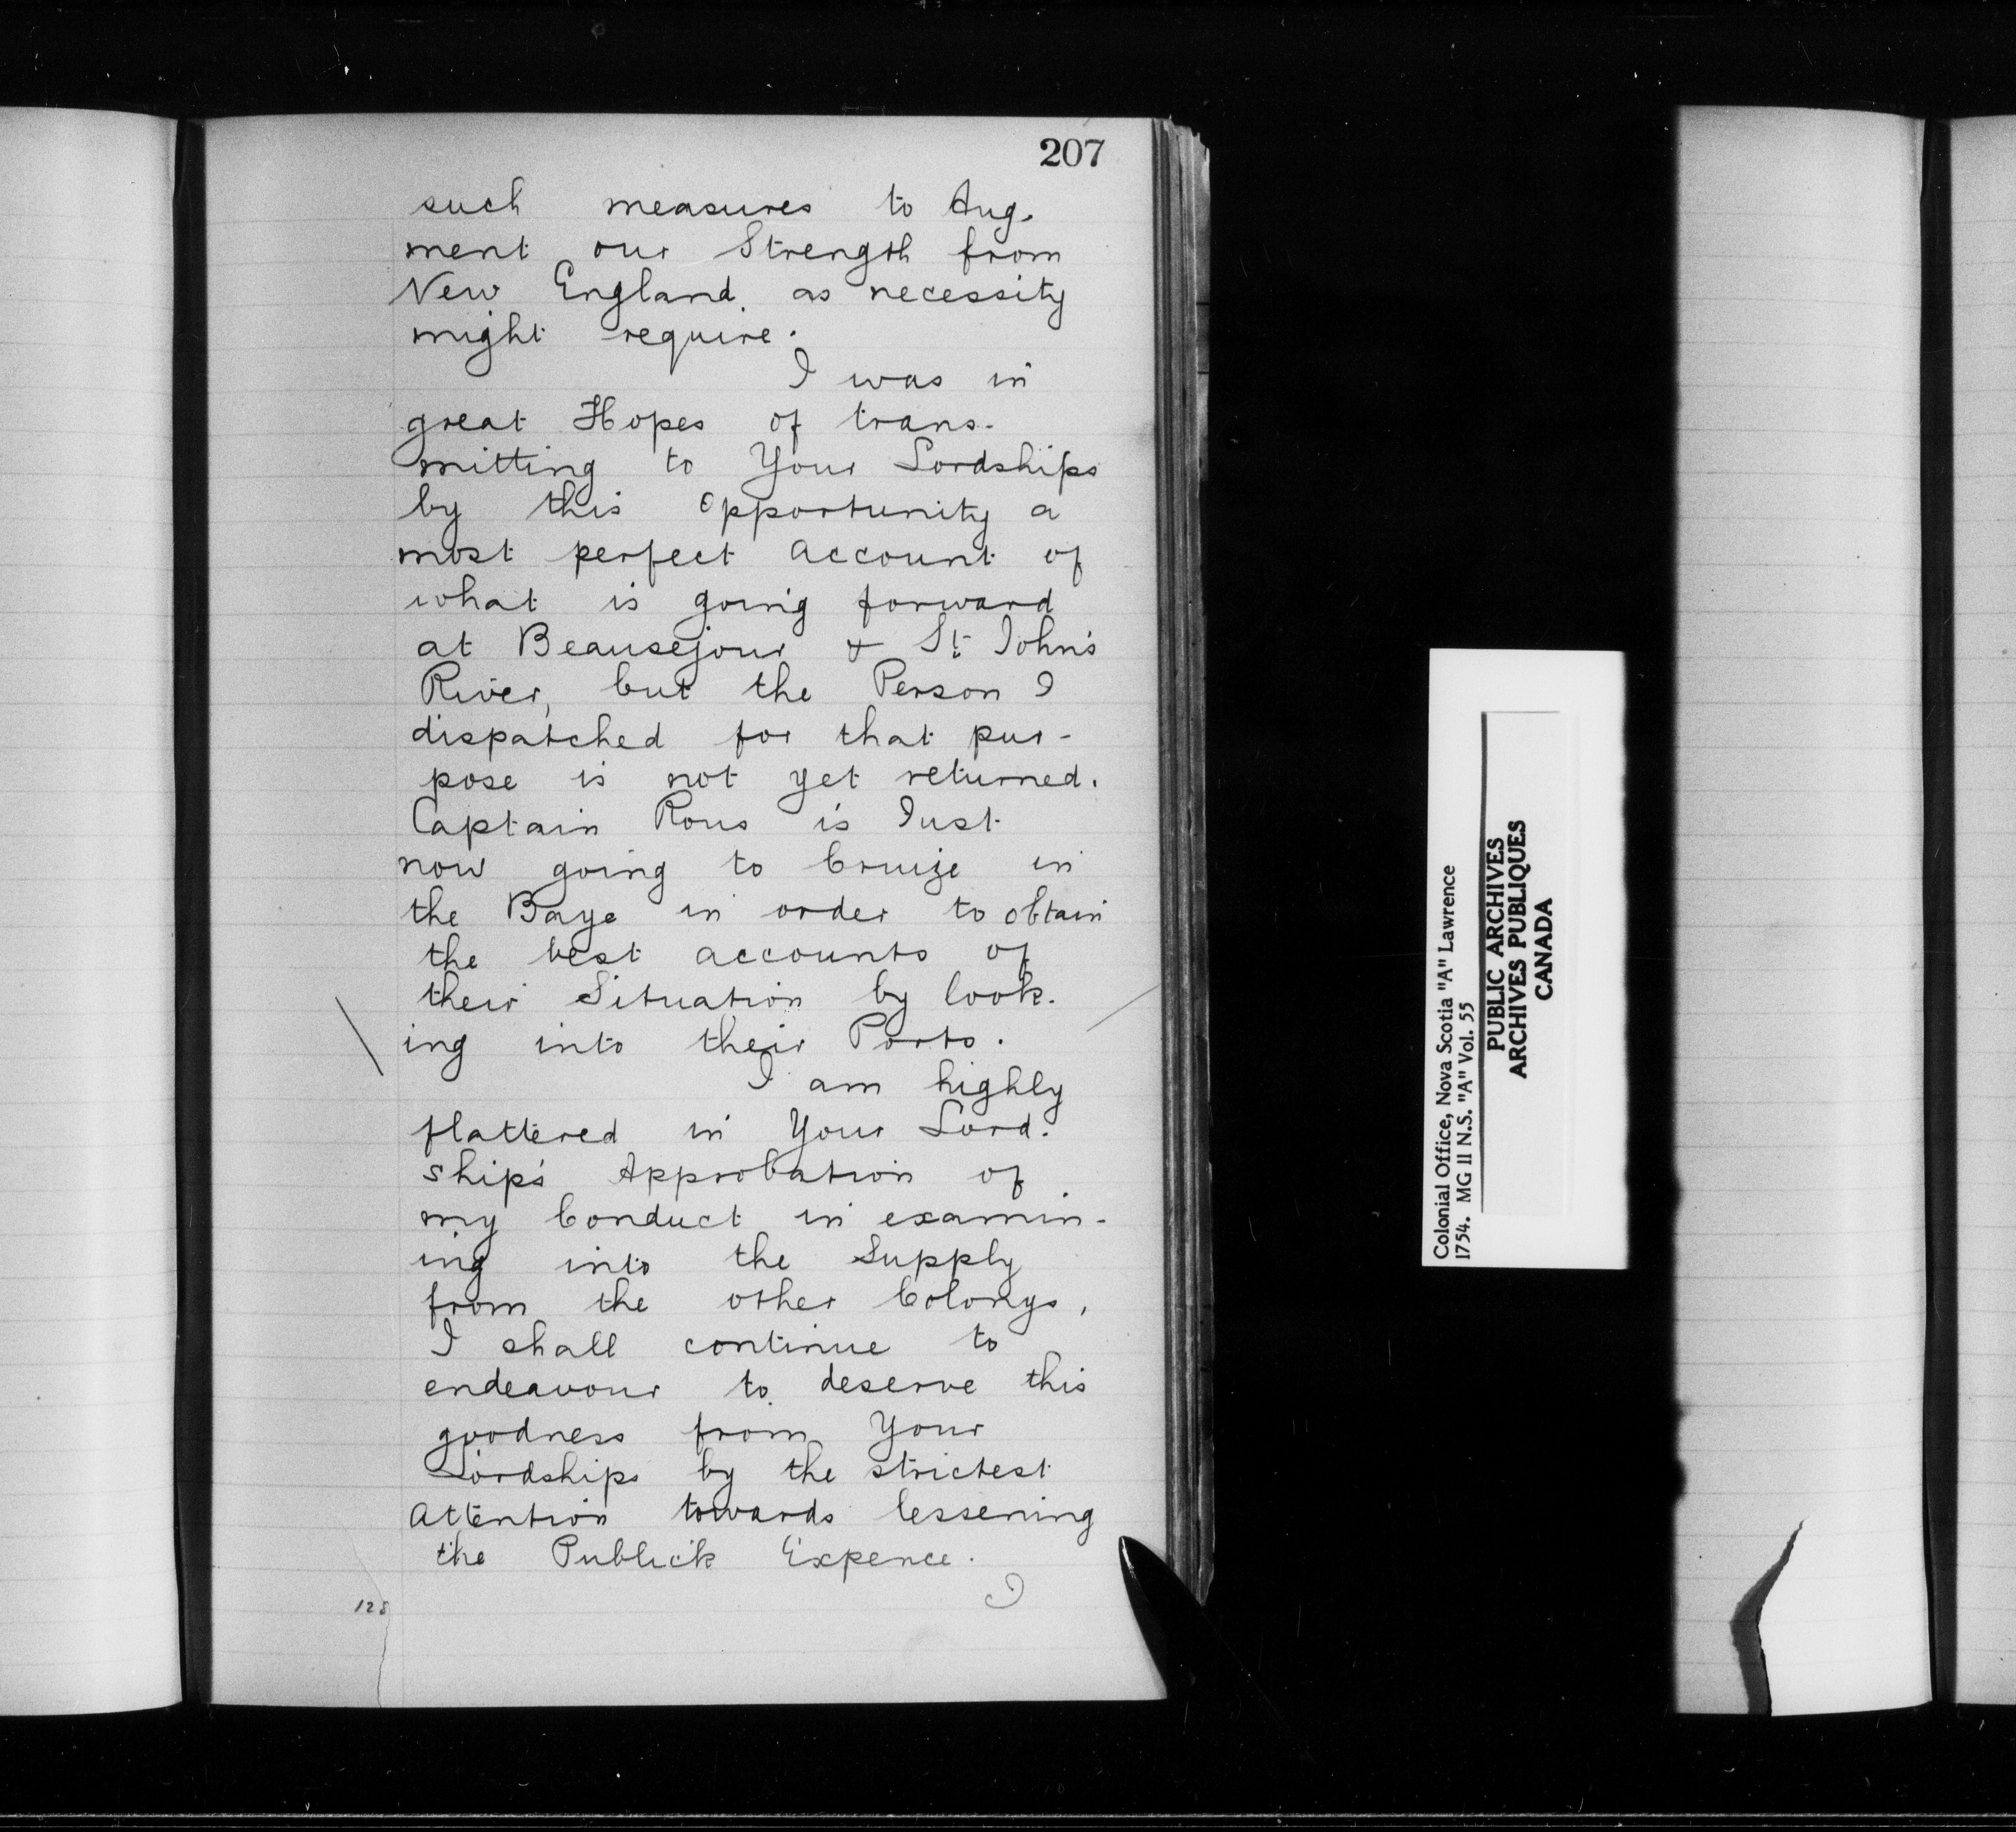 207
such measures to Aug-
ment our Strength from
New England, as necessity
might require.
I was in
great Hopes of trans-
mitting to Your Lordships
by this Opportunity a
most perfect account of
what is going forward
at Beausejour & St. John's
River, but the Person I
dispatched for that pur-
pose is not yet returned.
Captain Rous is Just
now going to Cruize in
the Baye in order to obtain
the best accounts of
their Situation by look-
ing into their Ports.
I am highly
flattered in Your Lord-
ship's Approbation of
my Conduct in examin-
ing into the Supply
from the other Colonys,
I shall continue to
endeavour to deserve this
goodness from Your
Lordships by the strictest
Attention towards lessening
the Publick Expence.
I
128
Colonial Office, Nova Scotia "A" Lawrence
1754. MG 11 N.S. "A" Vol. 55
PUBLIC ARCHIVES
ARCHIVES PUBLIQUES
CANADA